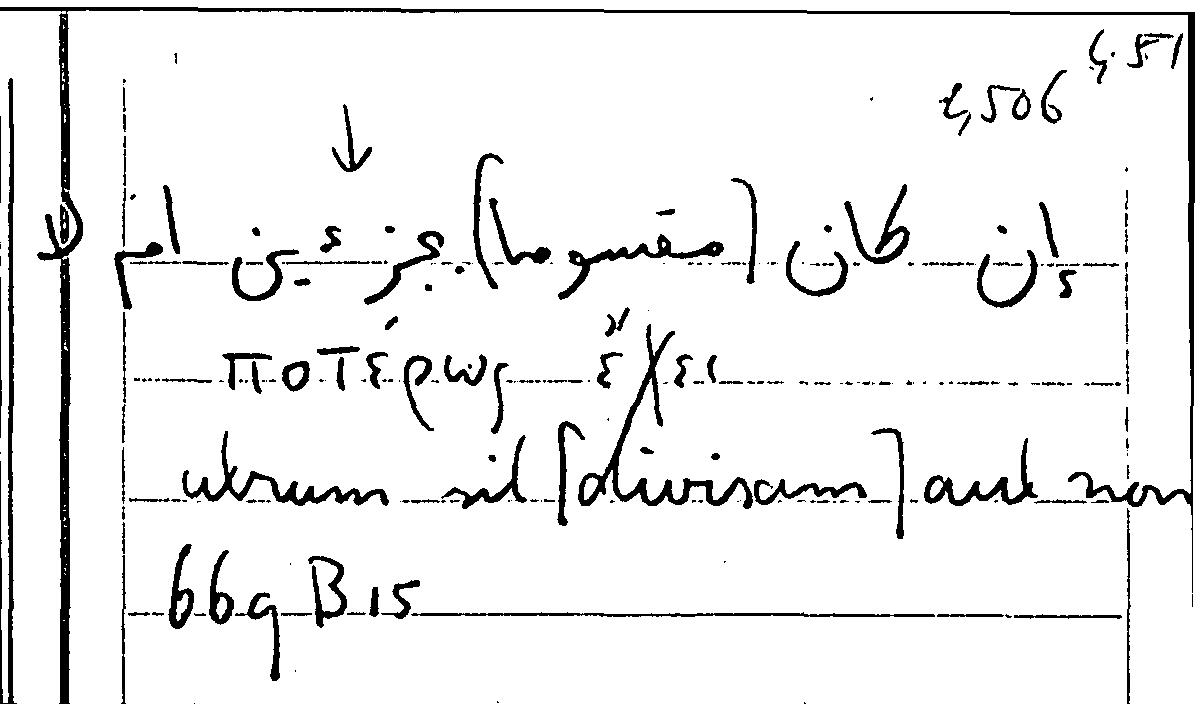 51
506
إن كان [مقسوما] بجزئين ام لا
ποτέρως ἔχει
utrum sit [divisam] aut non
669 B 15